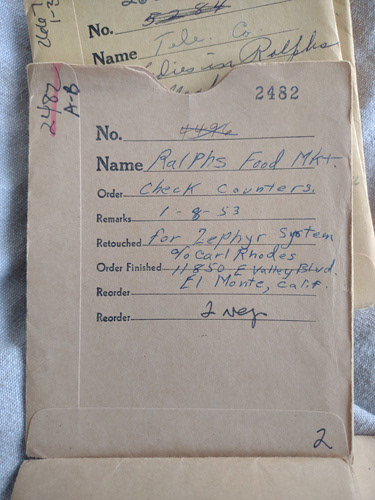 No. 5284
Name Tele. Co.
Ladies in Ralphs
2482
A-B
2482
No. 4496
Name Ralphs Food Mkt.
Order Check Counters.
Remarks 1-8-53
Retouched for Zephyr System
% Carl Rhodes
Order Finished 11850 E Valley Blvd.
Reorder El Monte, Calif.
Reorder 2 neg
2